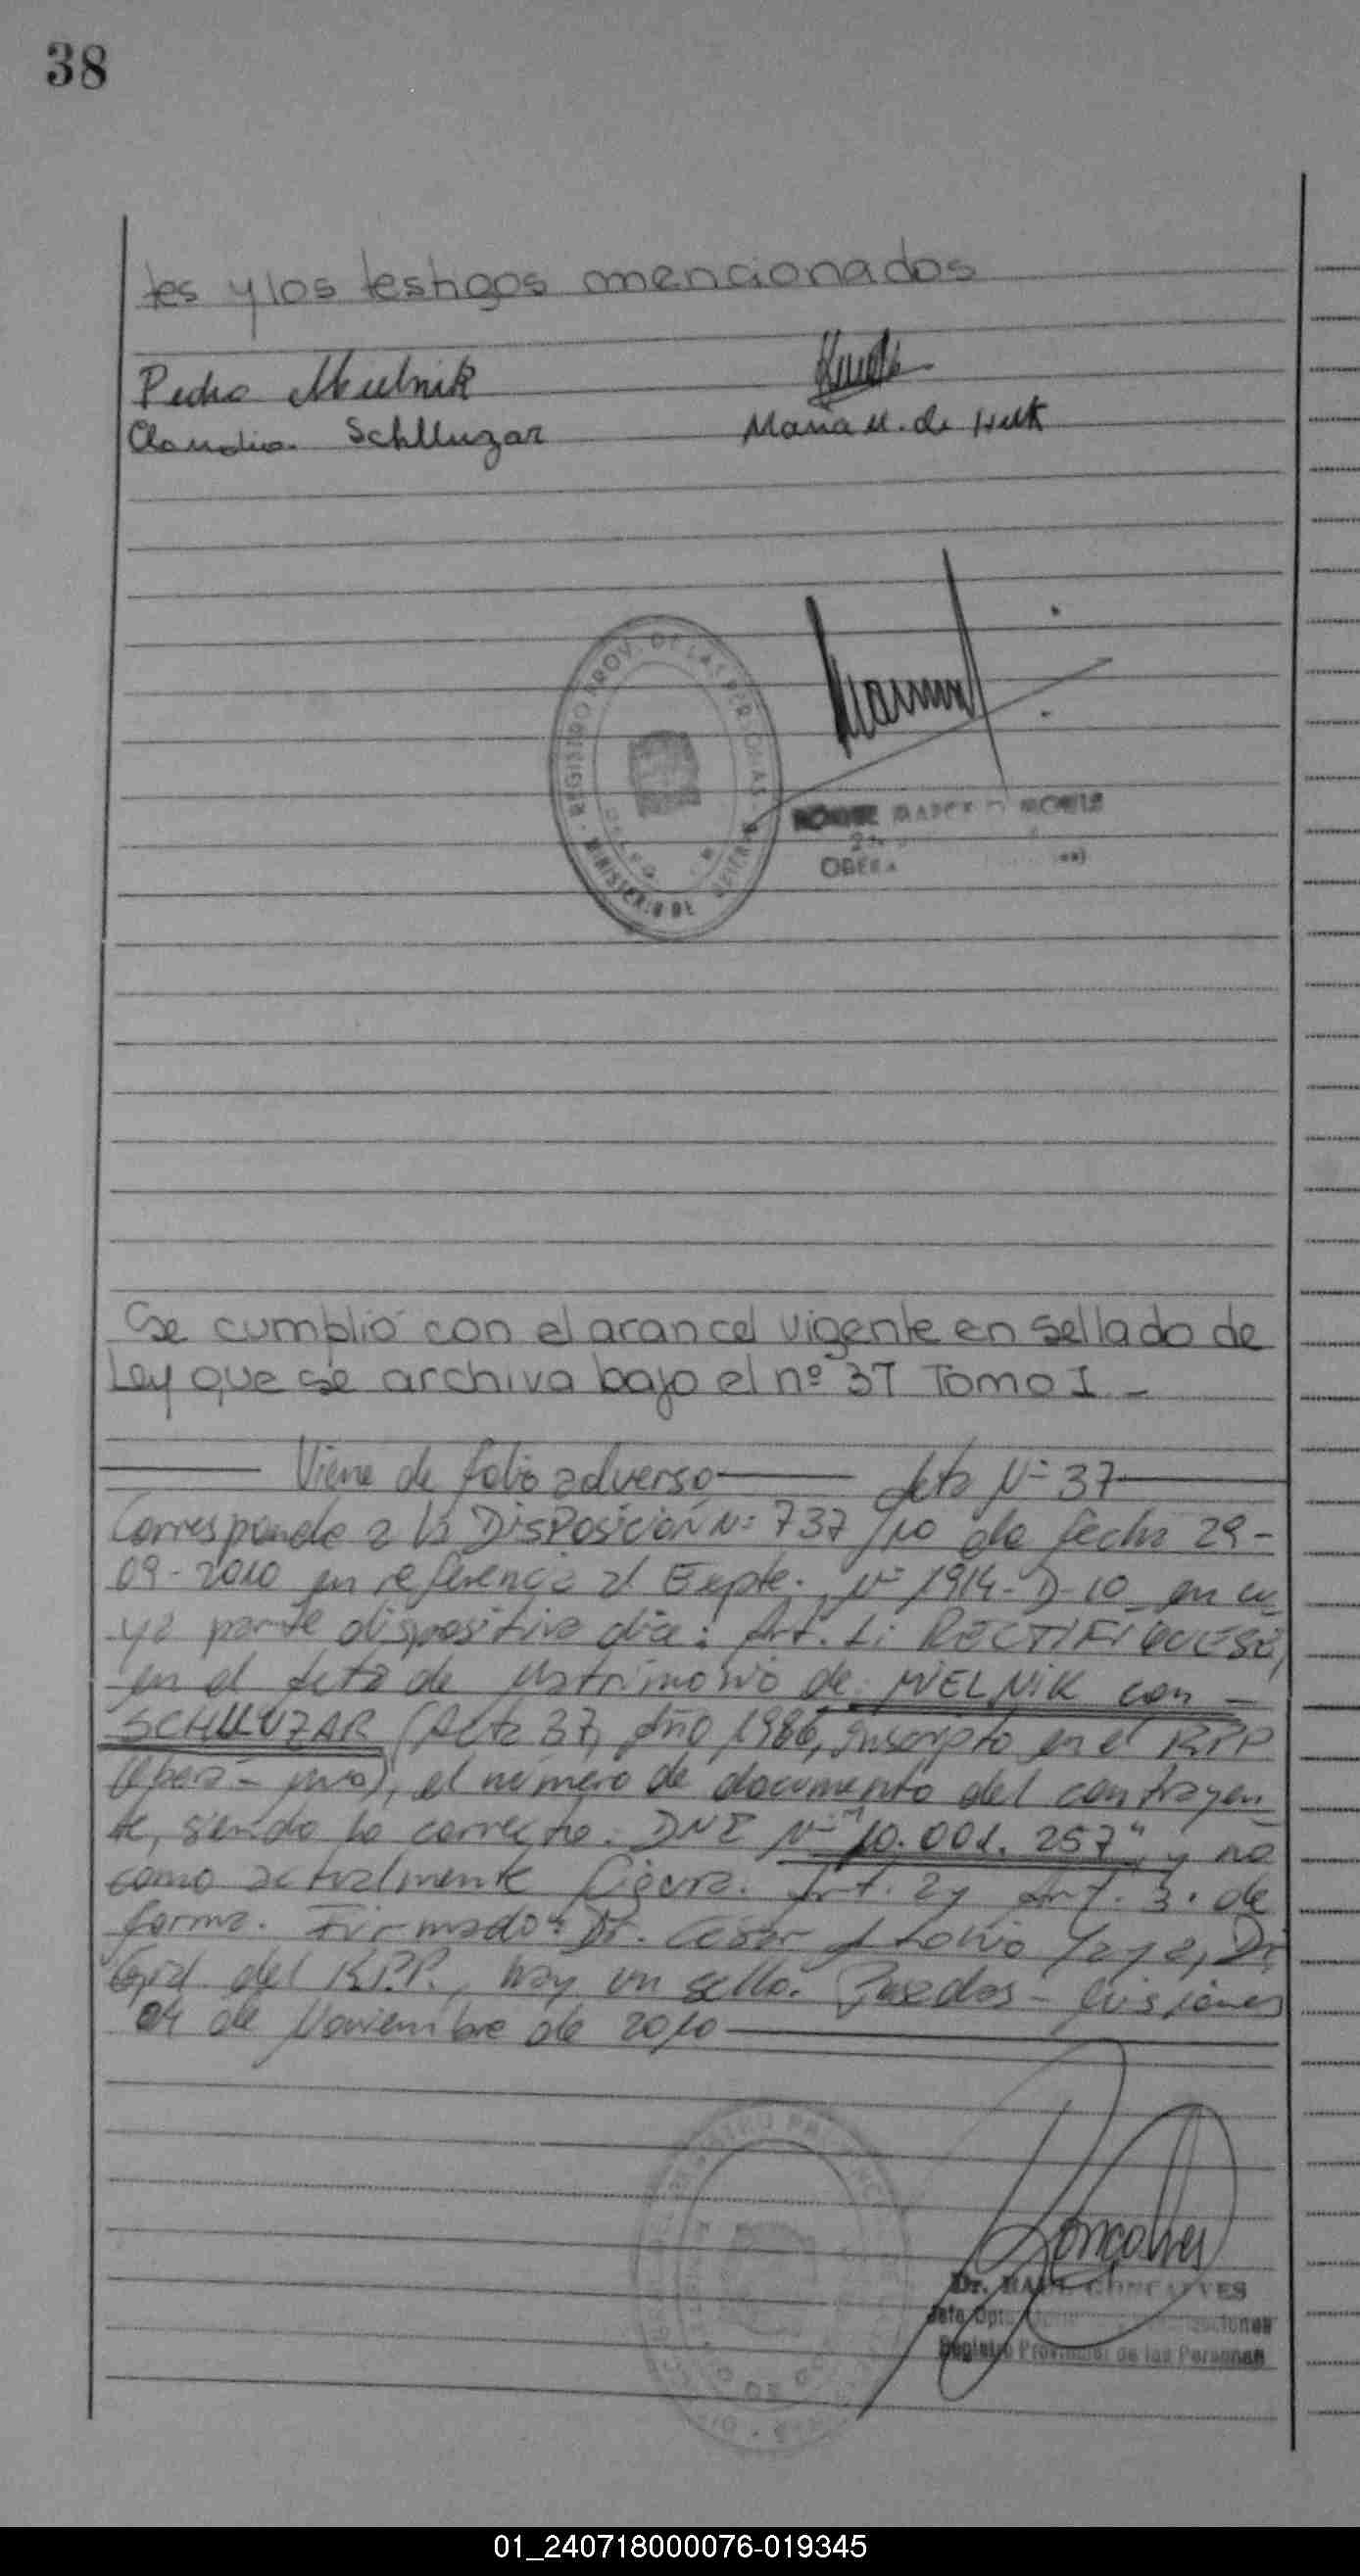 38
tes y los testigos mencionados
Pedro Mielnik
Claudia Schlluzar Maria M. de
REGISTRO PROV. DE LAS PERSONAS
MINISTERIO DE
OBERA
Se cumplió con el arancel vigente en sellado de
Ley que se archiva bajo el nº 37 Tomo I -
Viene de folio adverso Acta Nº 37
Corresponde a la DISPOSICION Nº 737/10 de fecha 29-
09-2010 en referencia al Expte. Nº 1914-D-10 en cu-
ya parte dispositiva dice: Art. 1: RECTIFIQUESE,
en el Acta de Matrimonio de MIELNIK con -
SCHLLUZAR (Acta 37, Año 1986, Inscripto en el RPP
Oberá - ), el número de documento del contrayen-
te, siendo lo correcto: DNI Nº "10.001.257" y no
como actualmente figura. Art. 2 y Art. 3. de
forma. Firmado: Dr. César Yaya, Dir
Gral del R.P.P., hay un sello. Posadas - Misiones
04 de Noviembre de 2010
Dr. RAUL GONCALVES
Jefe Dpto.
Registro Provincial de las Personas
01_240718000076-019345